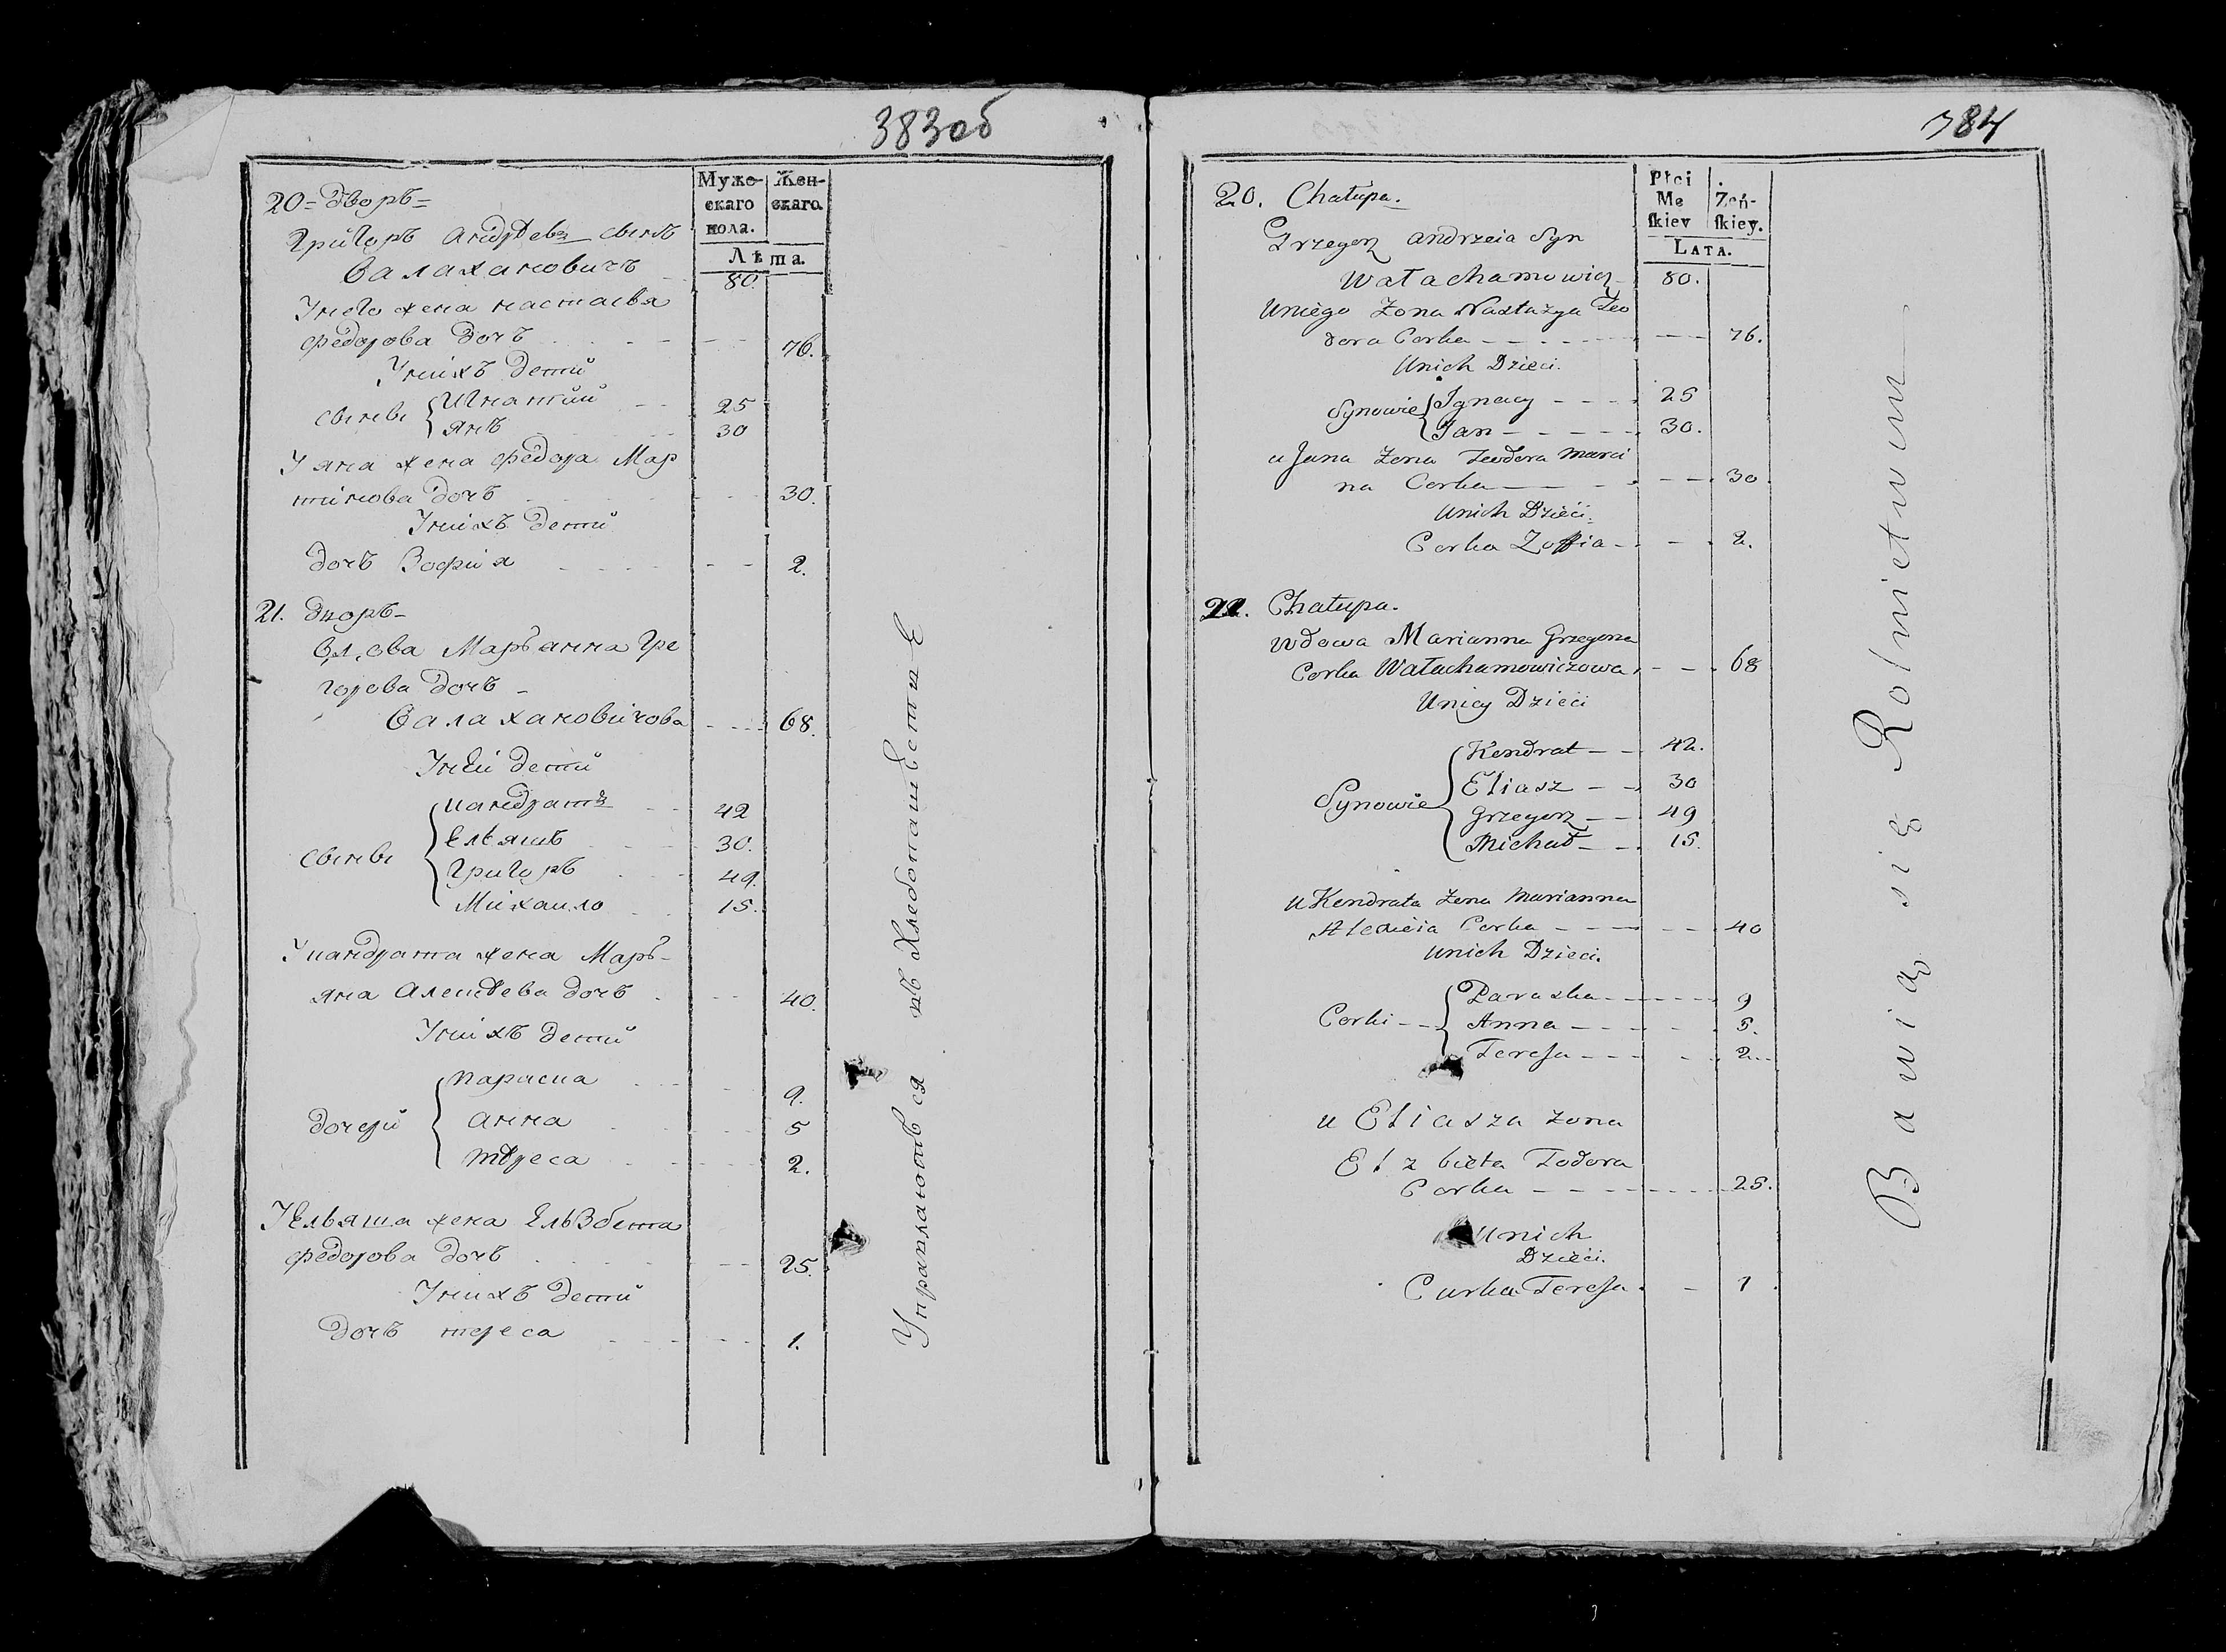 383об
Муже-
скаго
пола.
Жен-
скаго.
Лѣта.
20= Дворъ=
Григоръ Андрѣевъ сынъ
Валахановичъ 80.
Унего жена настасья
федорова дочъ 76.
Унихъ дети
сыны Игнатий 25
янъ 30
У яна жена федора Мар
тинова дочъ 30.
Унихъ дети
дочъ Зофия 2.
21. Дворъ-
Марьянна Гре
горова дочъ -
Валахановичова 68.
Уней дети
сыны кандратъ 42
Ельяшъ 30.
Григоръ 49.
Михаило 15.
У кандрата жена Марь-
яна Алексѣева дочъ 40.
Унихъ дети
дочери параска 9.
анна 5
тѣреса 2.
У Ельяша жена Ельзбета
федорова дочъ 25.
Унихъ дети
дочъ тереса 1.
Упражняютъся въ Хлебопашествие
384
Płci
Me
ſkiey
Żeń-
ſkiey.
LATA.
20. Chałupa.
Grzegorz andrzeia Syn
Wałachamowicz 80.
Uniego Zona Nastazya Teo
dora Corka 76.
Unich Dzieci.
Synowie Ignacy 25
Jan 30.
u Jana Zona Teodora Marci
na Corka 30
Unich Dzieci.
Corka Zoffia 2.
21. Chałupa.
Wdowa Marianna Grzegorza
Corka Wałachamowiczowa 68
Uniey Dzieci
Synowie Kendrat 42.
Eliasz 30
Grzegorz 49
Michał 15.
u Kendrata Zona Marianna
Alexieia Corka 40
Unich Dzieci.
Corki Paraska 9
Anna 5.
Teresa 2
u Eliasza zona
Elzbieta Todora
Corka 25.
Unich
Dzieci.
Curka Teresa 1
Bawią się Rolnictwem